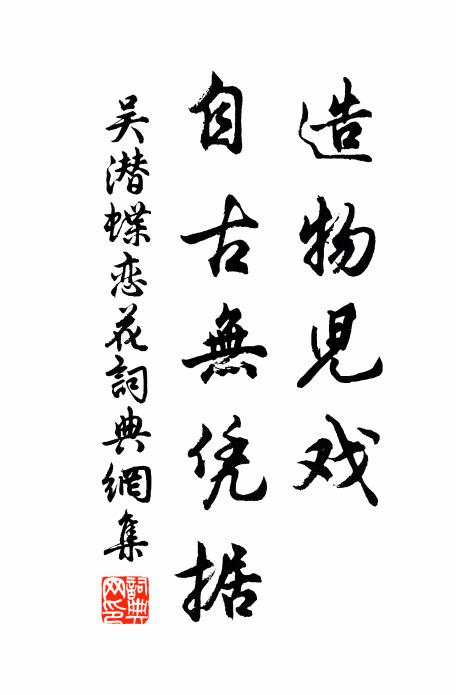 造物児戏
自古無凭据
吴潜蝶恋花詞典網集
詞典網印